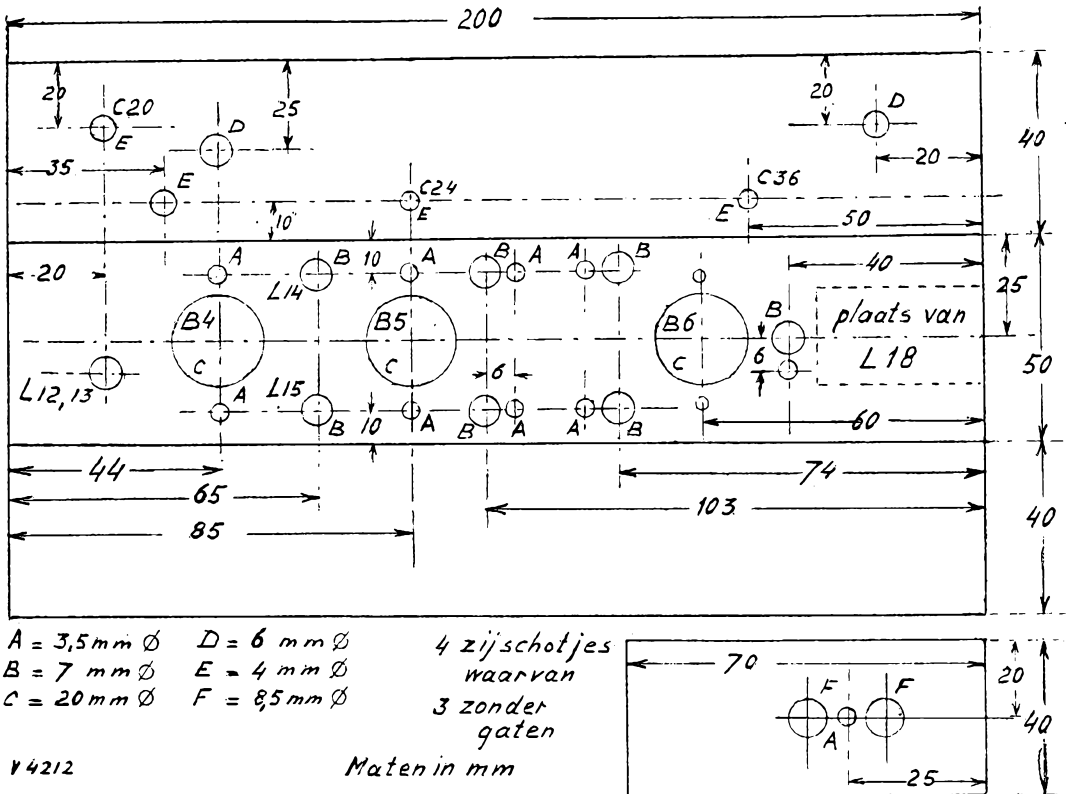 200
20
C20
E
25
D
20
D
40
35
E
10
C24
E
C36
E
20
50
20
A
L14
B
10
A
B
A
A
B
40
25
B4
C
B5
C
B6
C
B
6
plaats van
L18
50
L12,13
A
L15
B
10
A
6
B
A
A
B
60
44
74
65
103
85
40
A = 3,5 mm Ø D = 6 mm Ø
B = 7 mm Ø E = 4 mm Ø
C = 20 mm Ø F = 8,5 mm Ø
4 zijschotjes
waarvan
3 zonder
gaten
70
20
F
F
A
40
25
V4212
Maten in mm